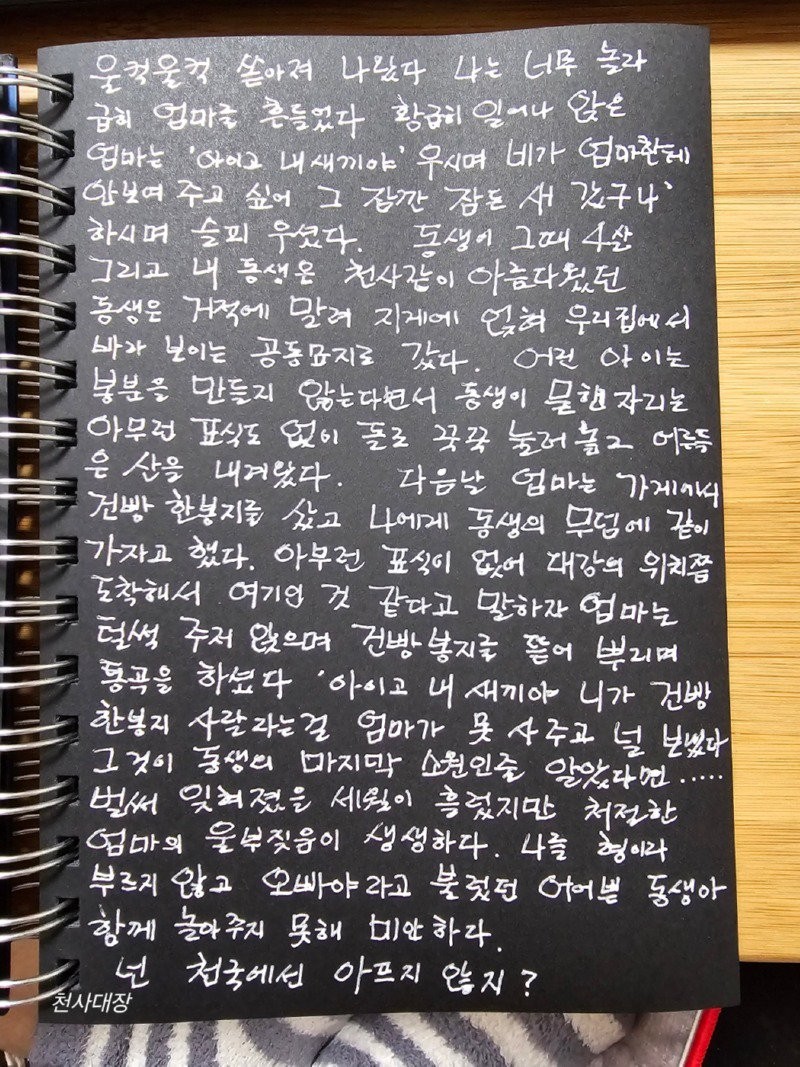 울컥울컥 쏟아져 나왔다 나는 너무 놀라
급히 엄마를 흔들었다 황급히 일어나 앉은
엄마는 '아이고 내새끼야' 우시며 네가 엄마한테
안보여 주고 싶어 그 잠깐 잠든 새 갔구나'
하시며 슬피 우셨다. 동생이 그때 4살
그리고 내 동생은 천사같이 아름다웠던
동생은 거적에 말려 지게에 얹혀 우리집에서
바라 보이는 공동묘지로 갔다. 어린 아이는
봉분을 만들지 않는다면서 동생이 묻힌자리는
아무런 표식도 없이 돌로 꾹꾹 눌러놓고 어른들
은 산을 내려왔다. 다음날 엄마는 가게에서
건빵 한봉지를 샀고 나에게 동생의 무덤에 같이
가자고 했다. 아무런 표식이 없어 대강의 위치쯤
도착해서 여기인 것 같다고 말하자 엄마는
털썩 주저 앉으며 건빵봉지를 뜯어 뿌리며
통곡을 하셨다 '아이고 내새끼야 니가 건빵
한봉지 사달라는걸 엄마가 못 사주고 널 보냈다
그것이 동생의 마지막 소원인줄 알았다면.....
벌써 잊혀졌을 세월이 흘렀지만 처절한
엄마의 울부짖음이 생생하다. 나를 형이라
부르지 않고 오빠야라고 불렀던 어여쁜 동생아
함께 놀아주지 못해 미안하다.
넌 천국에선 아프지 않지?
천사대장